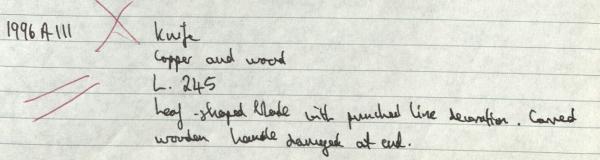 1996 A 111 Knife
Copper and wood
L. 245
Leaf-shaped blade with punched line decoration. Carved
wooden handle damaged at end.